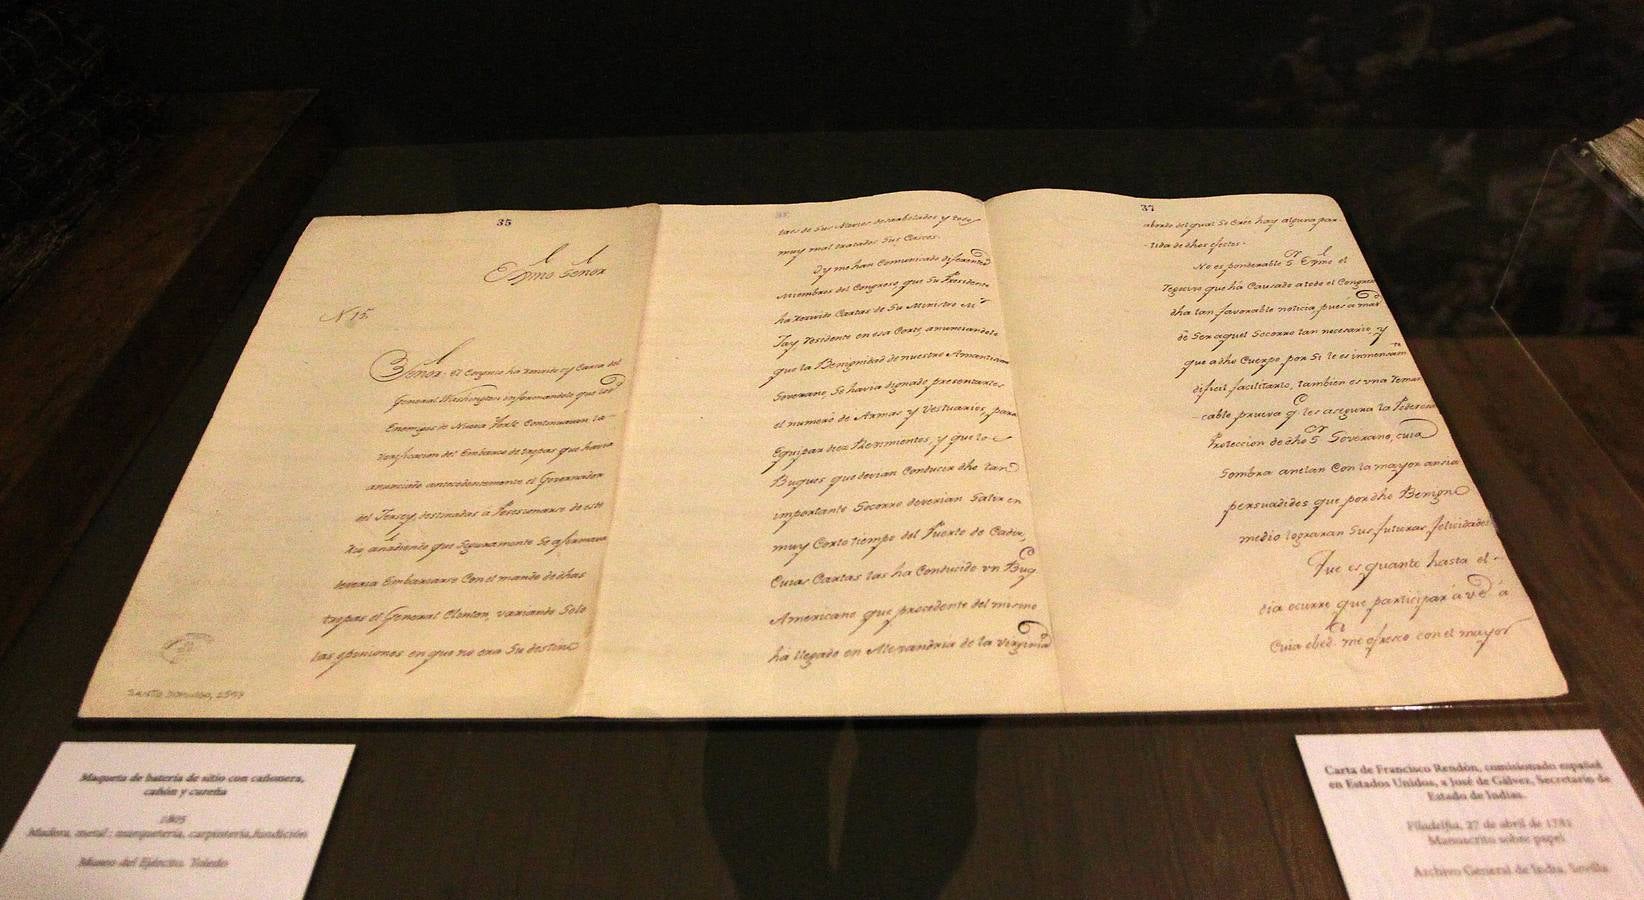 35
Exmo Señor
N 15.
Señor: el Congreso ha recivido Carta del
General Washington informandole que los
Enemigos de Nueva York Continuavan la
verificacion del Embarco de tropas que havia
anunciado antecedentemente el Governador
del Jersey, destinadas á Posesionarse de este
Rio, anadiendo que Seguramente Se afirmava
deveria Embarcarse Con el mando de dhas
tropas el General Clinton, variando Solo
las opiniones en que no era Su destino
Santo Domingo, 2597
de Sus Navios desarbolados y todos
muy mal tratados Sus Cascos.
Oy me han Comunicado diferentes
Miembros del Congreso que Su Presidente
ha recivido Cartas de Su Ministro Mr
Jay residente en esa Corte, anunciandole
que la Benignidad de nuestro Amantisimo
Soverano, Se havia dignado presentarles
el numero de Armas y Vestuarios, para
Equipar diez Regimientos, y que los
Buques que devian Conducir dho tan
importante Socorro deverian Salir en
muy Corto tiempo del Puerto de Cadiz,
Cuias Cartas las ha Conducido un Buq
Americano que procedente del mismo
ha llegado en Alexandria de la Virginia
37
abordo del qual Se Cree hay alguna par-
-tida de dhos efectos.
No es ponderable Sor Exmo el
regocijo que há Causado a todo el Congreso
dha tan favorable noticia pues a mas
de Ser aquel Socorro tan necesario, y
que adho Cuerpo, por Si le es inmensam.te
dificil facilitarlo, tambien es una remar-
-cable prueva q.e les asegura la Poderosa
Proteccion de dho Sor Soverano, cuia
Sombra anelan Con la mayor ansia
persuadidos que por dho Benigno
medio lograran Sus futuras felicidades
Que es quanto hasta el
dia ocurre que participar á V.E. á
Cuia obed.a me ofresco con el mayor
Maqueta de batería de sitio con cañonera,
cañón y cureña
1805
Madera, metal : marquetería, carpintería, fundición
Museo del Ejército. Toledo
Carta de Francisco Rendón, comisionado español
en Estados Unidos, a José de Gálvez, Secretario de
Estado de Indias.
Filadelfia, 27 de abril de 1781
Manuscrito sobre papel
Archivo General de India. Sevilla